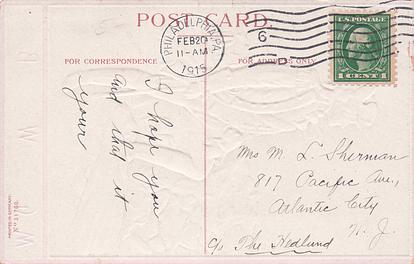 POST CARD.
PHILADELPHIA, PA.
FEB 20
11-AM
1915
6
U.S. POSTAGE
1 CENT 1
FOR CORRESPONDENCE
FOR ADDRESS ONLY
I hope you
and that it
your
Mrs M L. Sherman
817 Pacific Ave,
Atlantic City
N. J.
c/o The Hedlund
PRINTED IN GERMANY